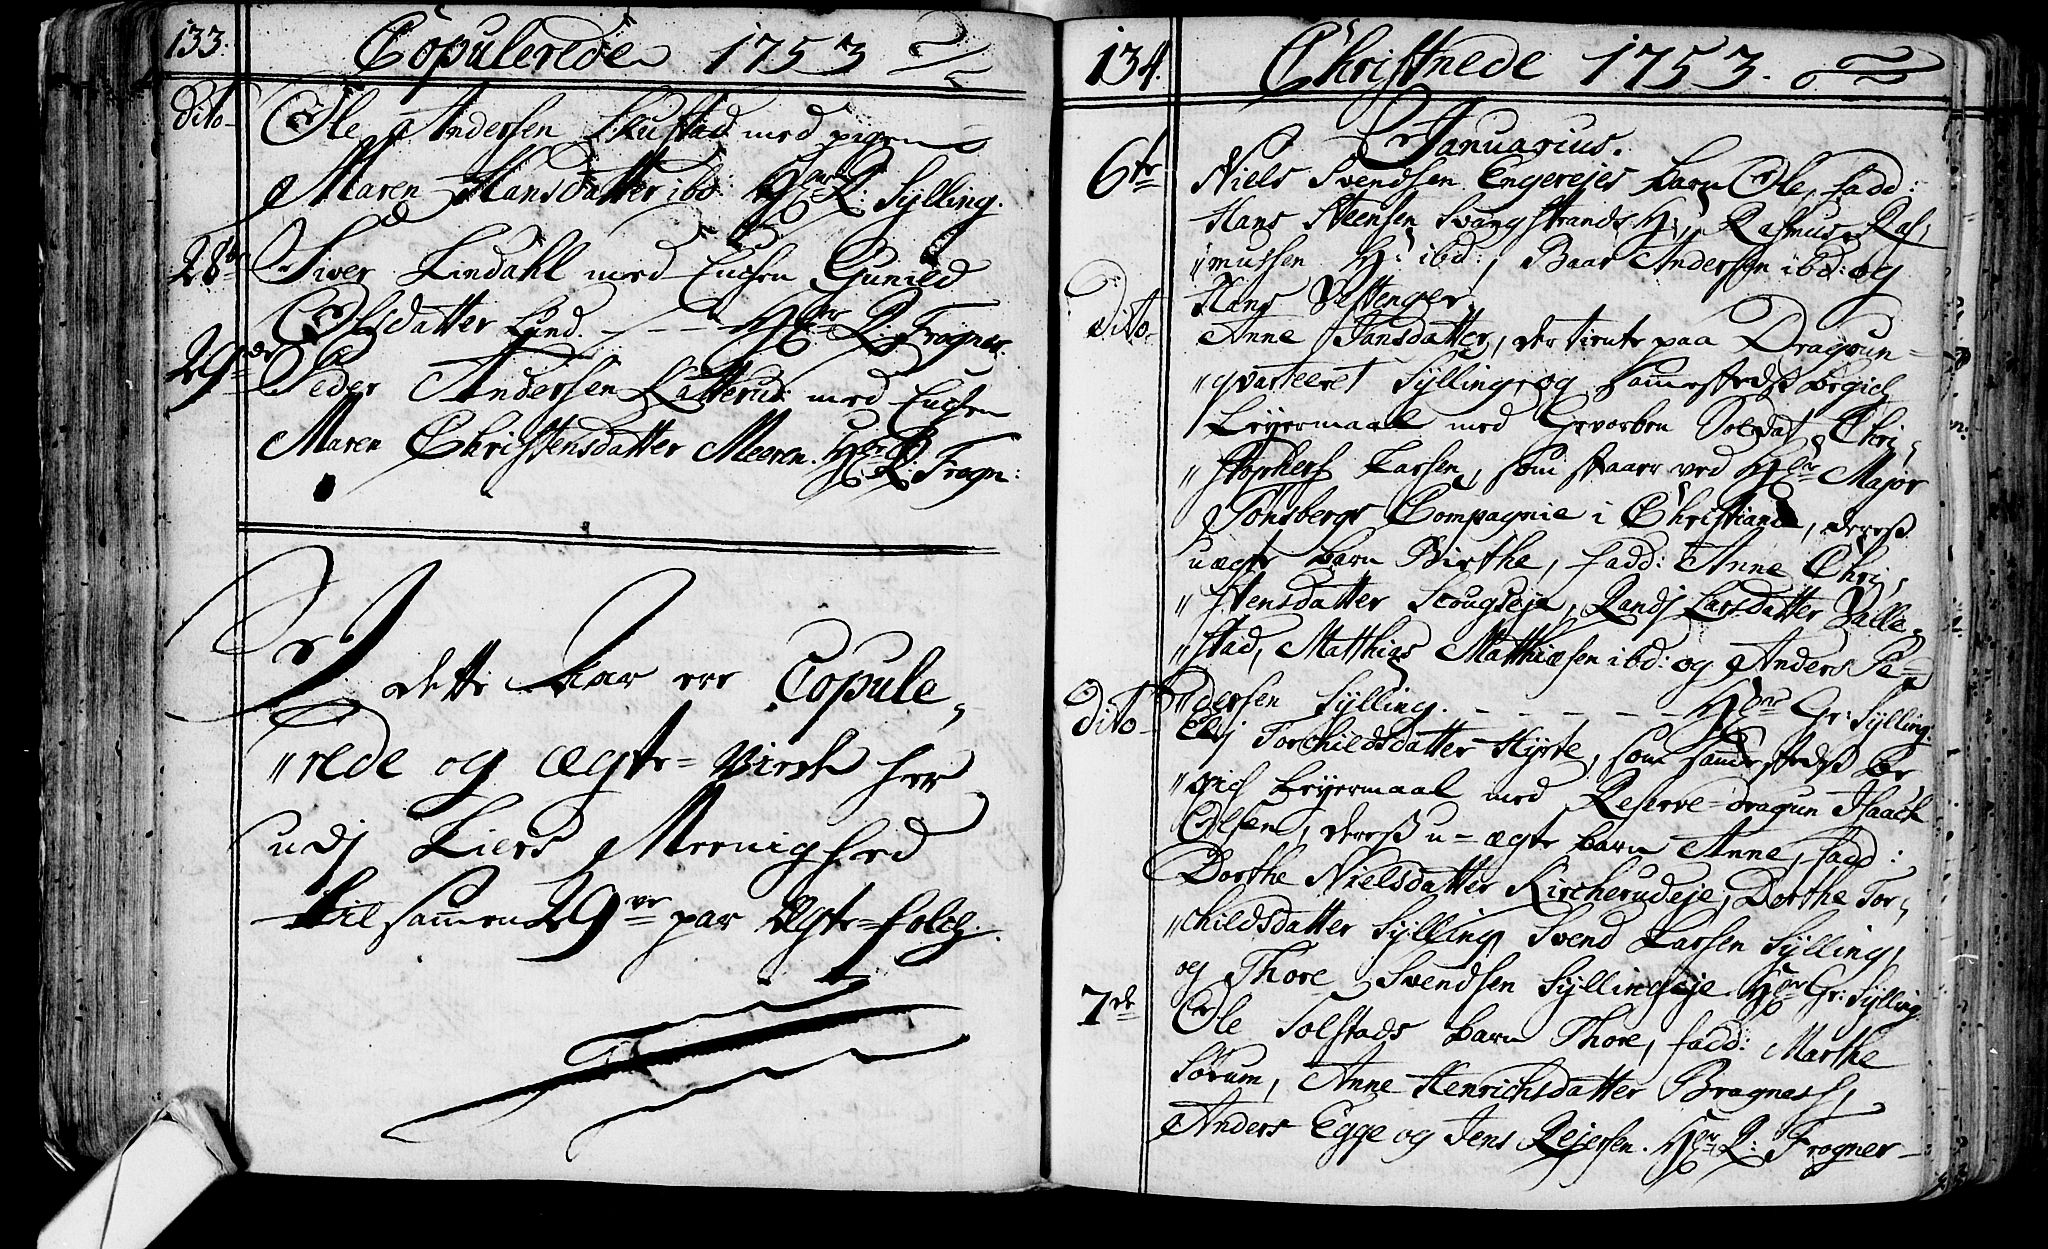 133.
Copulerede 1753
dito
Ole Andersen Skustad med pigen
Maren Hansdatter ibd: Hr R: Sylling.
28de
Siver Lindahl med Enchen Gunild
Olsdatter Lund. - - - Hr R: Frogner.
29de
Peder Andersen Katterud med Enchen
Maren Christensdatter Meeren. Hr R Frogn:
I dette Aar ere Copule,
"rede og ægte-Viede her
udj Liers Meenighed
til sammen 29ve par Ægte-folch.
134.
Christnede 1753.
Januarius.
6te
Niels Svendsen Engerejes barn Ole, fadd:
Hans Steensen Svangstrands H:, Rasmus Ras,
"mussen H: ibd:, Baar Andersen ibd: og
Hans Vettenger.
dito
Anne Hansdatter, der tiente paa Dragoun-
"qvarteeret Sylling, og sammestedsz begich
Leyermaal med Gevorben Soldat Chri,
"stophers Larsen, som staaer ved Hr Major
Tønsbergs Compagnie i Christiania, deresz
uægte barn Birthe, fadd: Anne Chri,
"stensdatter Scougseje, Randj Larsdatter Valle-
"stad, Matthias Matthiæsen ibd: og Anders Pe-
"dersen Sylling. - - - - - Hr Gr: Sylling.
dito
Elj Torchildsdatter Hyrte, som sammestedsz be
"gich Leyermaal med Reserve-dragun Isaach
Olsen, deresz u-ægte barn Anne, fadd:
Dorthe Nielsdatter Kircherudeje, Dorthe Tor,
"childsdatter Sylling, Svend Larsen Sylling,
og Thore Svendsen Syllingseje. Hr Gr: Sylling
7de
Ole Solstads barn Thore, fadd: Marthe
Sørum, Anne Henrichsdatter Bragness,
Anders Egge og Jens Rejersen. Hr R: Frogner-